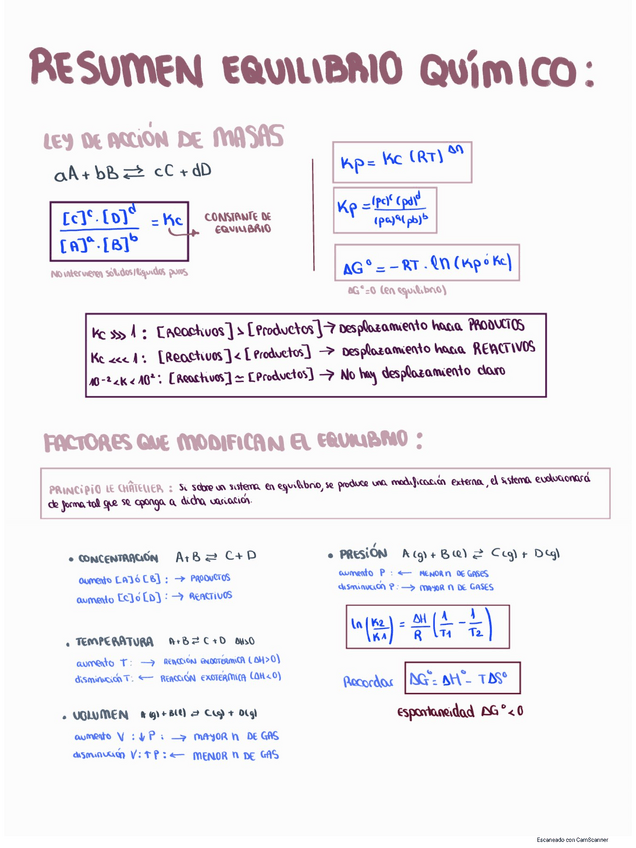 RESUMEN EQUILIBRIO QUÍMICO:
LEY DE ACCIÓN DE MASAS
aA + bB ⇄ cC + dD
[C]ᶜ · [D]ᵈ / [A]ᵃ · [B]ᵇ = Kc → CONSTANTE DE
EQUILIBRIO
No intervienen sólidos/líquidos puros
Kp = Kc (RT)^Δn
Kp = (pc)ᶜ (pd)ᵈ / (pa)ᵃ (pb)ᵇ
ΔG° = -RT · ln (Kp ó Kc)
ΔG°=0 (en equilibrio)
Kc >>> 1 : [Reactivos] > [Productos] → Desplazamiento hacia PRODUCTOS
Kc <<< 1 : [Reactivos] < [Productos] → Desplazamiento hacia REACTIVOS
10⁻² < K < 10² : [Reactivos] ≃ [Productos] → No hay desplazamiento claro
FACTORES QUE MODIFICAN EL EQUILIBRIO :
PRINCIPIO LE CHÂTELIER : Si sobre un sistema en equilibrio, se produce una modificación externa, el sistema evolucionará
de forma tal que se oponga a dicha variación.
• CONCENTRACIÓN A + B ⇄ C + D
aumento [A] ó [B] : → PRODUCTOS
aumento [C] ó [D] : → REACTIVOS
• TEMPERATURA A + B ⇄ C + D ΔH>0
aumento T : → REACCIÓN ENDOTÉRMICA (ΔH>0)
disminución T : ← REACCIÓN EXOTÉRMICA (ΔH<0)
• VOLUMEN A(g) + B(l) ⇄ C(g) + D(g)
aumento V : ↓ P : → MAYOR n DE GAS
disminución V : ↑ P : ← MENOR n DE GAS
• PRESIÓN A(g) + B(l) ⇄ C(g) + D(g)
aumento P : ← MENOR n DE GASES
disminución P : → MAYOR n DE GASES
ln (K2/K1) = ΔH/R (1/T1 - 1/T2)
Recordar ΔG° = ΔH° - TΔS°
Espontaneidad ΔG° < 0
Escaneado con CamScanner